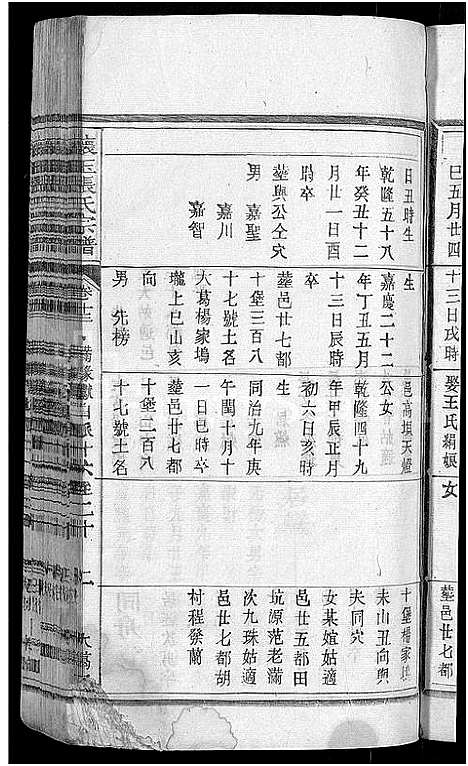 巳五月廿四
十三日戌時
娶王氏絹娘
女
塟邑廿七都
日丑時生
乾隆五十八
年癸丑十二
月廿一日酉
時卒
塟與公仝穴
男 嘉聖
嘉川
嘉智
生
嘉慶二十二
年丁丑五月
十三日辰時
卒
塟邑廿七都
十堡三百八
十七號土名
大葛楊家塢
壠上巳山亥
向
男 先榜
邑高堨天燈
公女
乾隆四十九
年甲辰正月
初六日亥時
生
同治九年庚
午閏十月十
一日巳時卒
塟邑廿七都
十堡二百八
十七號土名
十堡楊家塢
未山丑向與
夫同穴
女某媗姑適
邑廿五都田
坑源范老滿
次九珠姑適
邑廿七都胡
村程發蘭
張氏宗譜
卷十三